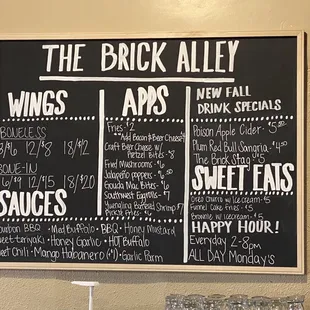 THE BRICK ALLEY
WINGS
BONELESS
/$6 12/$8 18/$12
BONE-IN
6/$9 12/$15 18/$20
SAUCES
Bourbon BBQ • Med Buffalo • BBQ • Honey Mustard
Sweet teriyaki • Honey Garlic • HOT Buffalo
Sweet Chili • Mango Habanero (*!) • Garlic Parm
APPS
Fries - 2
**Add Bacon & Beer Cheese
Craft Beer Cheese w/
Pretzel Bites - 8
Fried Mushrooms - $6
Jalapeño poppers - $6
Gouda Mac Bites - $6
Southwest Eggrolls - $7
Yuengling Battered Shrimp $7
Pickle Fries
NEW FALL
DRINK SPECIALS
Poison Apple Cider - 5
Plum Red Bull Sangria - $4.50
The Brick Stag
SWEET EATS
Oreo Churro w/ Icecream $5
Funnel Cake Fries - $5
Brownie w/ Icecream - $5
HAPPY HOUR!
Everyday 2-8pm
ALL DAY Monday's